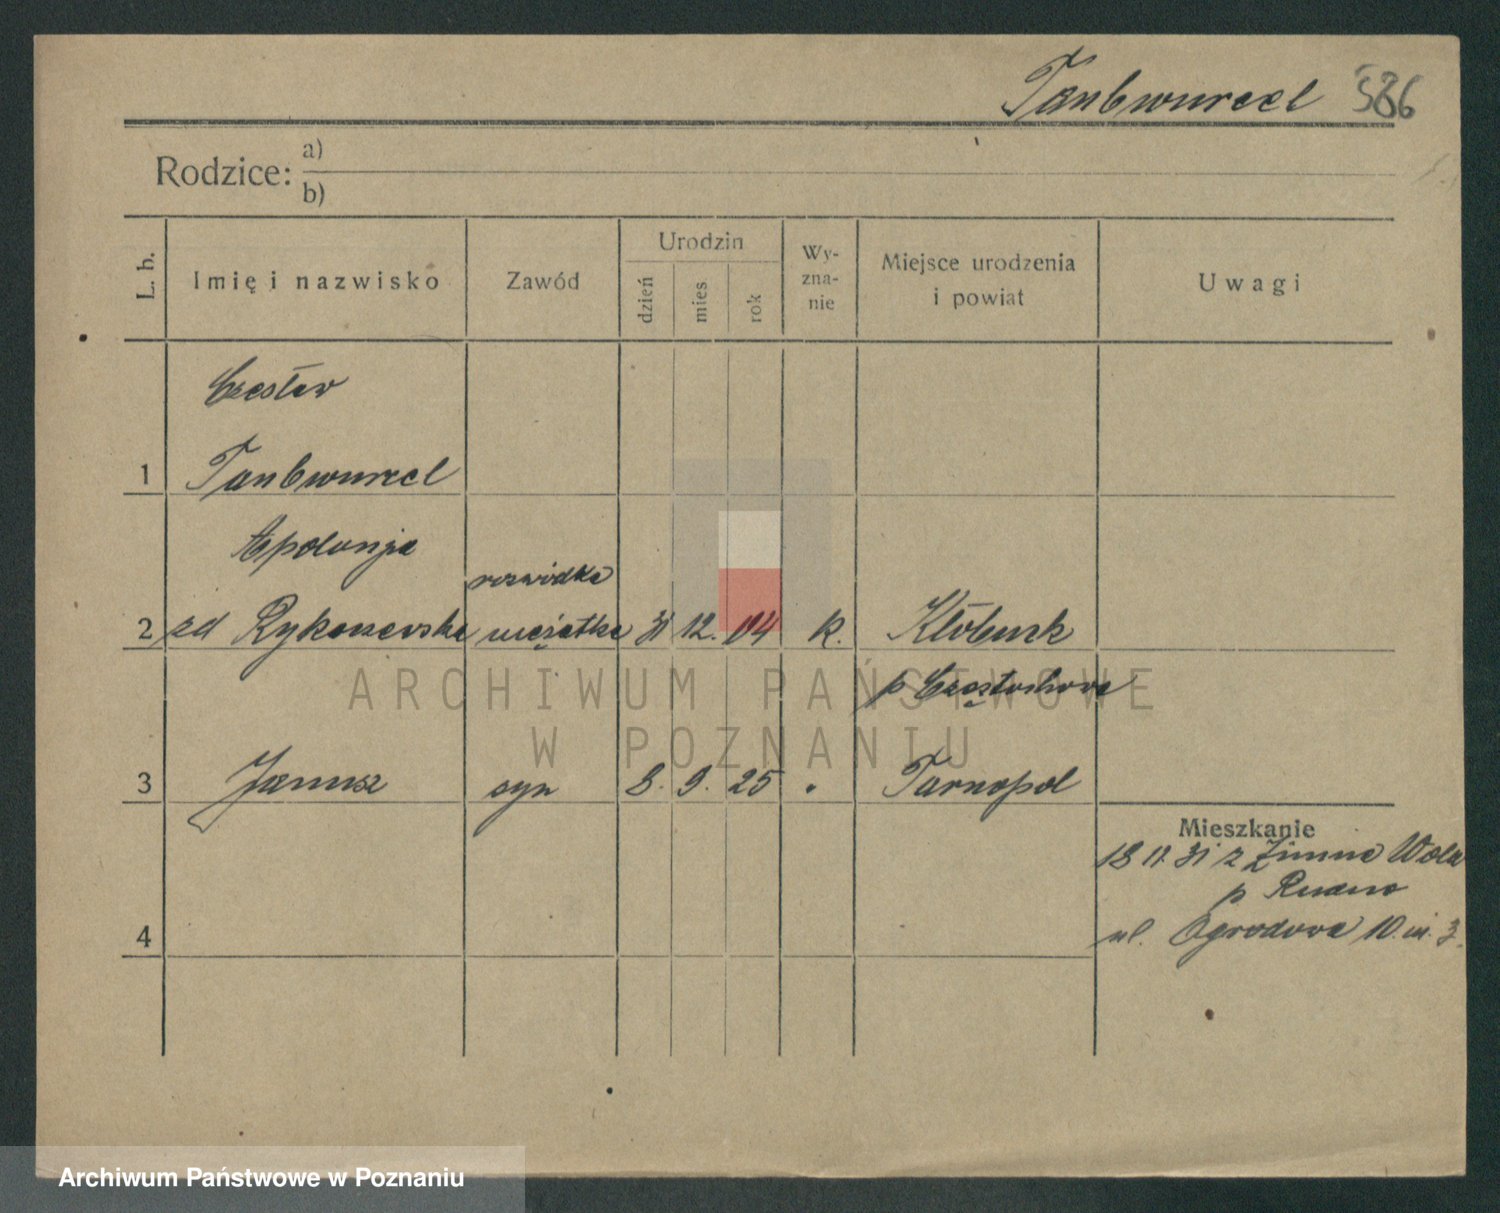 Taubwurcel 586
Rodzice: a)
b)
L. b. Imię i nazwisko Zawód Urodzin dzień mies rok Wy-zna-nie Miejsce urodzenia i powiat Uwagi
Czesław
1 Taubwurcel
Apolonja
rozwódka
2 zd Rykoszewska mężatka 31 12. 04 k. Kłobuck
p Częstochowa
ARCHIWUM PAŃSTWOWE
W POZNANIU
3 Janusz syn 8. 9. 25 " Tarnopol
Mieszkanie
18 11 31 z Zimna Wola
p
4 ul. Ogrodowa 10. m. 3.
Archiwum Państwowe w Poznaniu